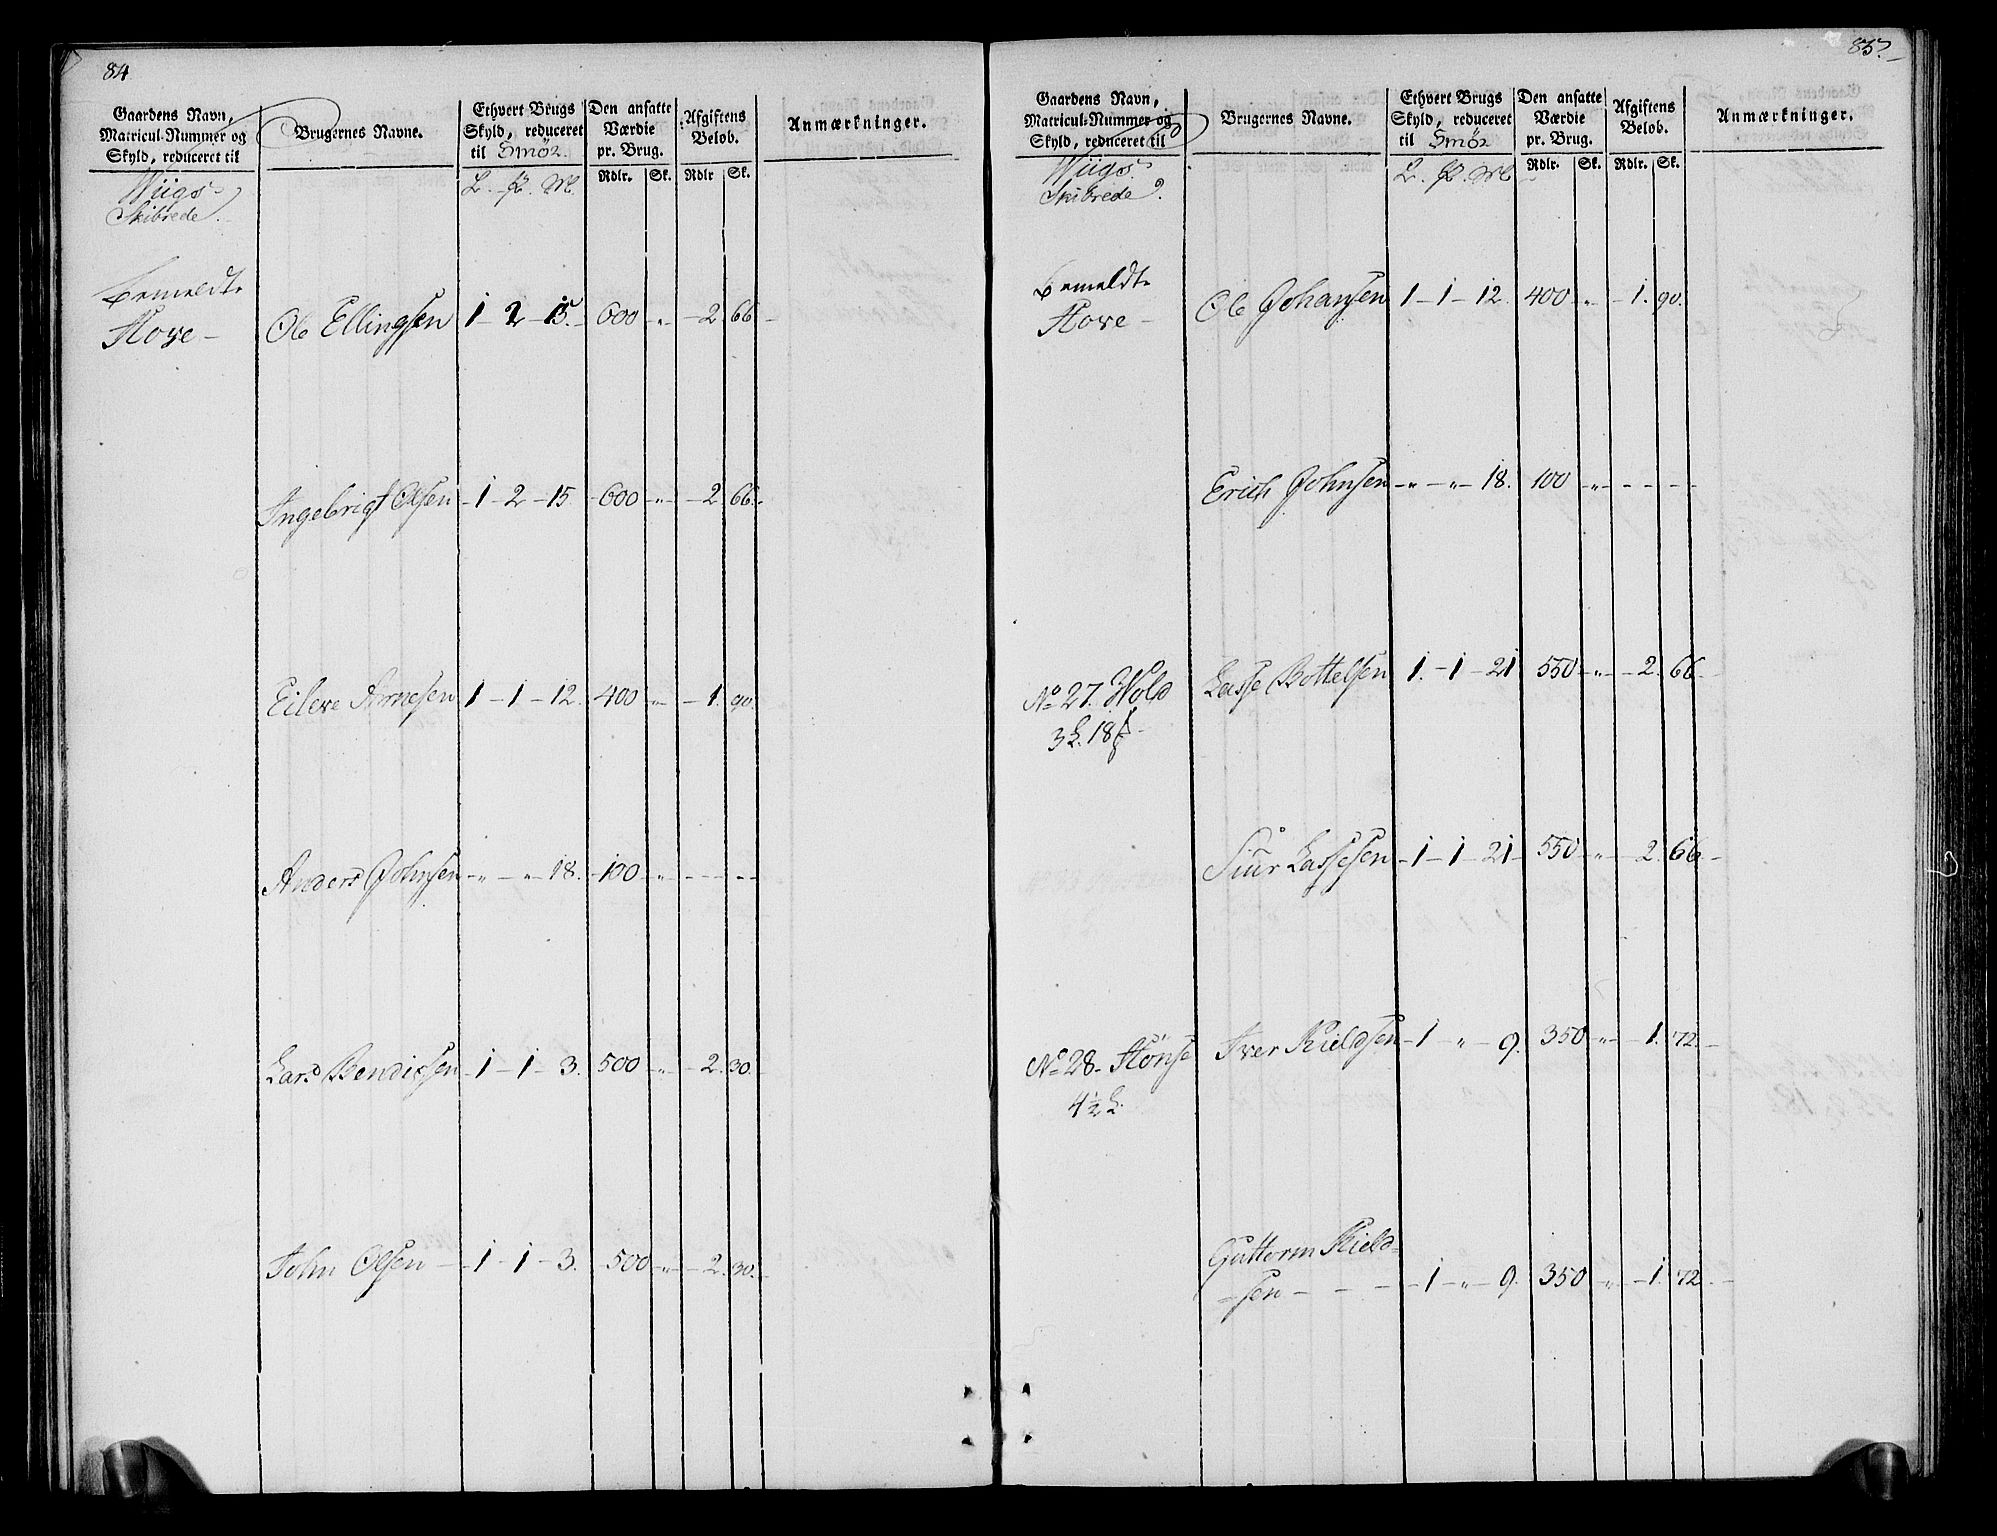 84
Gaardens Navn,
Matricul-Nummer og
Skyld, reduceret til
Brugernes Navne.
Ethvert Brugs
Skyld, reduceret
til Smör.
Den ansatte
Værdie
pr. Brug.
Afgiftens
Beløb.
Anmærkninger.
Rdlr. Sk. Rdlr Sk.
Wiigs
Skibrede.
Bemeldte
Hove -
Ole Ellingsen 1 - 2 - 15. 600 " - 2. 66.
Ingebrigt Olsen 1 - 2 - 15. 600 " - 2. 66.
Eileve Arnesen 1 - 1 - 12. 400 " - 1. 90.
Anders Johnsen " - " 18. 100 "
Lars Bendixsen 1 - 1 - 3. 500 " 2. 30.
John Olsen - 1 - 1 - 3. 500 " 2. 30.
85.
Gaardens Navn,
Matricul-Nummer og
Skyld, reduceret til
Brugernes Navne.
Ethvert Brugs
Skyld, reduceret
til Smör
Den ansatte
Værdie
pr. Brug.
Afgiftens
Beløb.
Anmærkninger.
Rdlr. Sk. Rdlr. Sk.
Wiigs
Skibrede.
Bemeldte
Hove -
Ole Johansen 1 - 1 - 12. 400 " - 1. 90.
Erich Johnsen " - " 18. 100 "
No 27. Hold
3 L. 18
Lasse Bottelsen 1. - 1 - 21 550 " - 2. 66.
Siur Lassesen - 1 - 1 - 21 - 550 " 2. 66 -
No 28. Hönse
4½ L.
Iver Kieldsen - 1 " - 9. 350 " - 1. 72.
Guttorm Kield-
-sen - - - 1 - " - 9. 350 " - 1. 72.